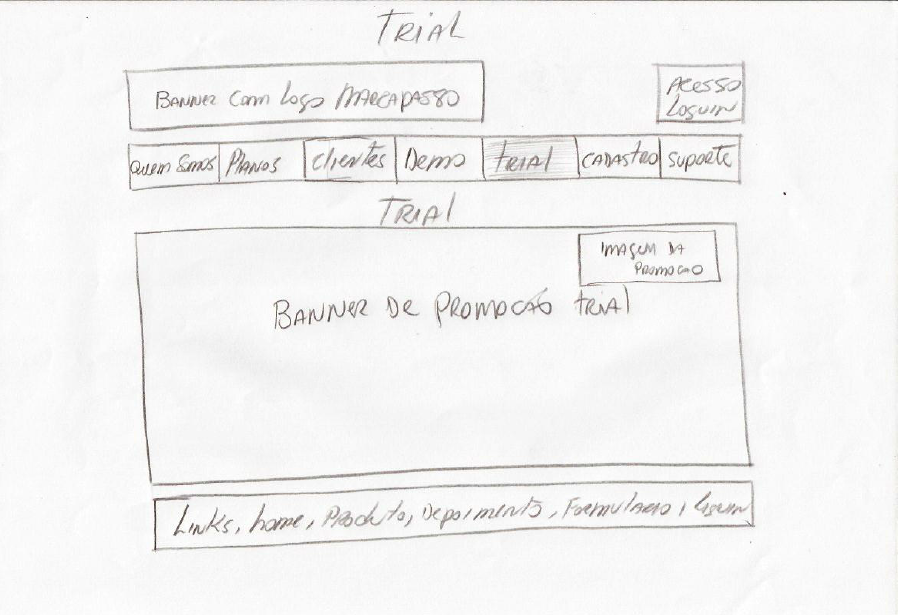 TRIAL
BANNER COM LOGO MARCAPASSO
ACESSO
LOGUIN
QUEM SOMOS PLANOS CLIENTES DEMO TRIAL CADASTRO SUPORTE
TRIAL
IMAGEM DA
PROMOCAO
BANNER DE PROMOCÃO TRIAL
LINKS, home, PRODUTO, DEPOIMENTO, FORMULARIO, LOGUIN